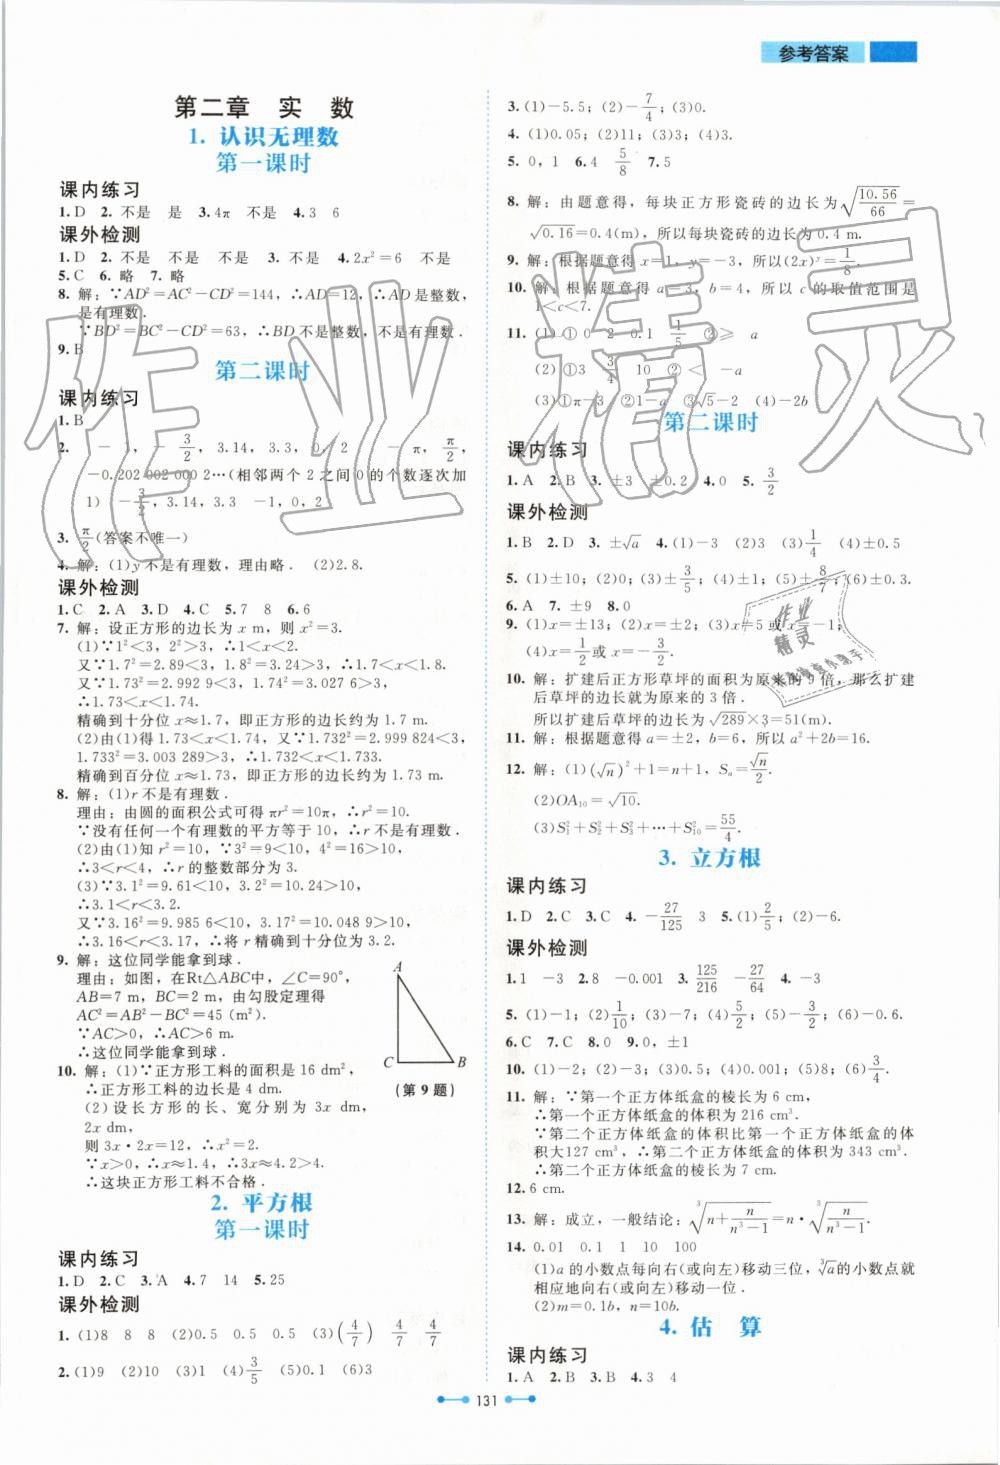 参考答案
第二章 实 数
1. 认识无理数
第一课时
课内练习
1. D 2. 不是 是 3. 4π 不是 4. 3 6
课外检测
1. D 2. 不是 不是 不是 3. 不是 4. 2x²=6 不是
5. C 6. 略 7. 略
8. 解:∵AD²=AC²-CD²=144,∴AD=12,∴AD是整数,
是有理数.
∵BD²=BC²-CD²=63,∴BD不是整数,不是有理数.
9. B
第二课时
课内练习
1. B
2. -1, -3/2, 3.14, 3.3, 0, 2 -π, π/2,
-0.202 002 000 2…(相邻两个 2 之间 0 的个数逐次加
1) -3/2, 3.14, 3.3 -1, 0, 2
3. π/2(答案不唯一)
4. 解:(1)y不是有理数,理由略. (2)2.8.
课外检测
1. C 2. A 3. D 4. C 5. 7 8 6. 6
7. 解:设正方形的边长为 x m,则 x²=3.
(1)∵1²<3,2²>3,∴1<x<2.
又∵1.7²=2.89<3,1.8²=3.24>3,∴1.7<x<1.8.
又∵1.73²=2.992 9<3,1.74²=3.027 6>3,
∴1.73<x<1.74.
精确到十分位 x≈1.7,即正方形的边长约为 1.7 m.
(2)由(1)得 1.73<x<1.74,又∵1.732²=2.999 824<3,
1.733²=3.003 289>3,∴1.732<x<1.733.
精确到百分位 x≈1.73,即正方形的边长约为 1.73 m.
8. 解:(1)r 不是有理数.
理由:由圆的面积公式可得 πr²=10π,∴r²=10.
∵没有任何一个有理数的平方等于 10,∴r 不是有理数.
(2)由(1)知 r²=10,∵3²=9<10,4²=16>10,
∴3<r<4,∴r 的整数部分为 3.
(3)∵3.1²=9.61<10,3.2²=10.24>10,
∴3.1<r<3.2.
又∵3.16²=9.985 6<10,3.17²=10.048 9>10,
∴3.16<r<3.17,∴将 r 精确到十分位为 3.2.
9. 解:这位同学能拿到球.
理由:如图,在Rt△ABC中,∠C=90°,
AB=7 m,BC=2 m,由勾股定理得
AC²=AB²-BC²=45 (m²).
∵AC>0,∴AC>6 m.
∴这位同学能拿到球.
A
C
B
(第 9 题)
10. 解:(1)∵正方形工料的面积是 16 dm²,
∴正方形工料的边长是 4 dm.
(2)设长方形的长、宽分别为 3x dm,
2x dm,
则 3x·2x=12,∴x²=2.
∵x>0,∴x≈1.4,∴3x≈4.2>4,
∴这块正方形工料不合格.
2. 平方根
第一课时
课内练习
1. D 2. C 3. A 4. 7 14 5. 25
课外检测
1. (1)8 8 8 (2)0.5 0.5 0.5 (3)(4/7) 4/7 4/7
2. (1)9 (2)10 (3)1 (4)3/5 (5)0.1 (6)3
3. (1)-5.5; (2)-7/4; (3)0.
4. (1)0.05; (2)11; (3)3; (4)3.
5. 0, 1 6. 4 5/8 7. 5
8. 解:由题意得,每块正方形瓷砖的边长为√(10.56/66)=
√0.16=0.4(m),所以每块瓷砖的边长为0.4 m.
9. 解:根据题意得 x=1,y=-3,所以(2x)^y=1/8.
10. 解:根据题意得 a=3,b=4,所以 c 的取值范围是
1<c<7.
11. (1)①0 2 0.1 1/5 ②≥ a
(2)①3 3/4 10 ②< -a
(3)①π-3 ②1-a ③√5-2 (4)-2b
第二课时
课内练习
1. A 2. B 3. ±3 ±0.2 4. 0 5. 3/2
课外检测
1. B 2. D 3. ±√a 4. (1)-3 (2)3 (3)1/4 (4)±0.5
5. (1)±10; (2)0; (3)±3/5; (4)±1; (5)±8/7; (6)±0.3.
6. A 7. ±9 8. 0
9. (1)x=±13; (2)x=±2; (3)x=5或x=-1;
(4)x=1/2或x=-3/2.
10. 解:扩建后正方形草坪的面积为原来的 9 倍,那么扩建
后草坪的边长就为原来的 3 倍.
所以扩建后草坪的边长为√289×3=51(m).
11. 解:根据题意得 a=±2,b=6,所以 a²+2b=16.
12. 解:(1)(√n)²+1=n+1,Sₙ=√n/2.
(2)OA₁₀=√10.
(3)S₁²+S₂²+S₃²+…+S₁₀²=55/4.
3. 立方根
课内练习
1. D 2. C 3. C 4. -27/125 3 5. (1)2/5; (2)-6.
课外检测
1. 1 -3 2. 8 -0.001 3. 125/216 -27/64 4. -3
5. (1)-1; (2)1/10; (3)-7; (4)5/2; (5)-3/2; (6)-0.6.
6. C 7. C 8. 0 9. 0, ±1
10. (1)-2; (2)-3; (3)0.5; (4)-1; (5)8; (6)3/4
11. 解:∵第一个正方体纸盒的棱长为 6 cm,
∴第一个正方体纸盒的体积为 216 cm³.
∵第二个正方体纸盒的体积比第一个纸盒的体
积大127 cm³,∴第二个正方体纸盒的体积为 343 cm³.
∴第二个正方体纸盒的棱长为 7 cm.
12. 6 cm.
13. 解:成立,一般结论:∛(n+n/(n³-1))=n·∛(n/(n³-1)).
14. 0.01 0.1 1 10 100
(1)a 的小数点每向右(或向左)移动三位,∛a的小数点就
相应地向右(或向左)移动一位.
(2)m=0.1b,n=10b.
4. 估 算
课内练习
1. A 2. B 3. B 4. 3 4
131
作业精灵
作业
精灵